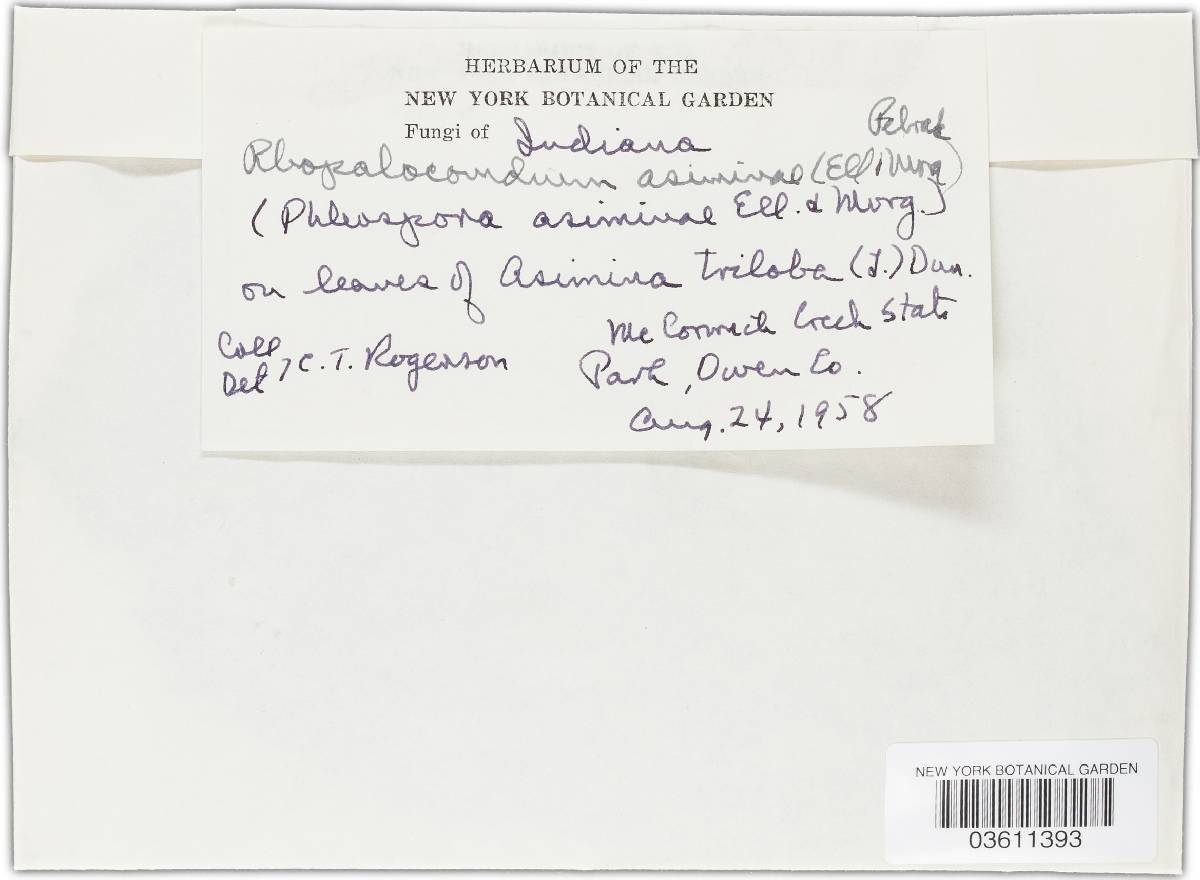 HERBARIUM OF THE
NEW YORK BOTANICAL GARDEN
Fungi of Indiana
Rhopaloconidium asiminae (Ell & Morg) Petrak
(Phleospora asiminae Ell. & Morg.)
on leaves of Asimina triloba (L.) Dun.
McCormick Creek State
Park, Owen Co.
Aug. 24, 1958
Coll
Det, C. T. Rogerson
NEW YORK BOTANICAL GARDEN
03611393